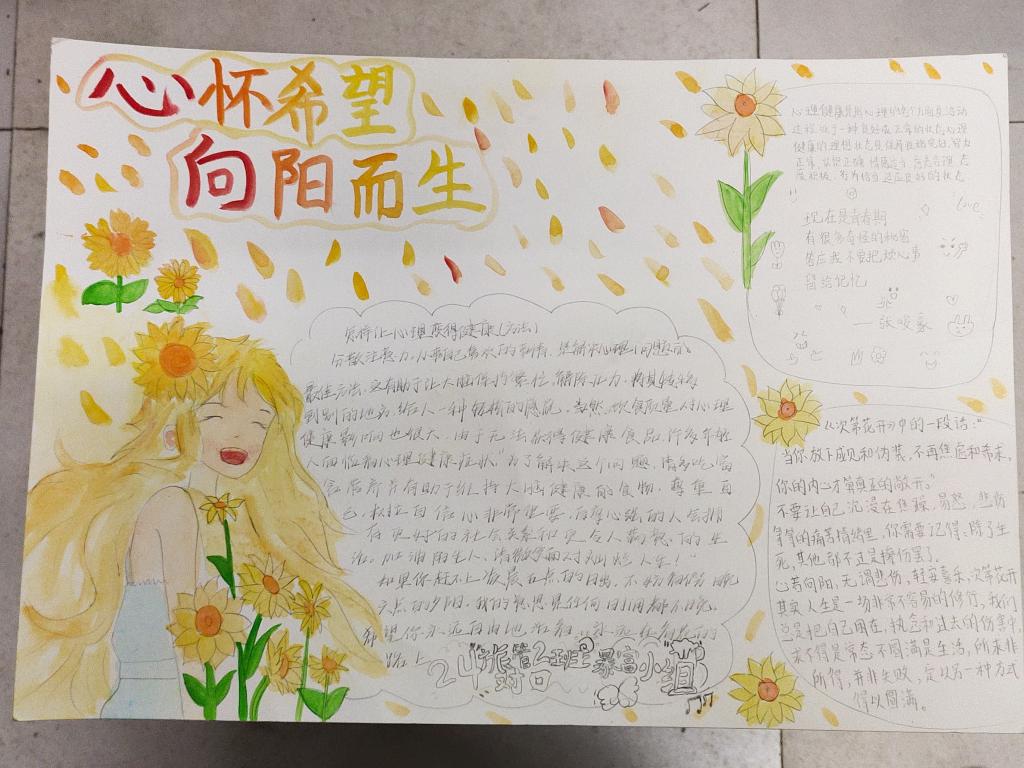 心怀希望
向阳而生
心理健康是指心理的各个方面及活动
过程处于一种良好或正常的状态心理
健康的理想状态是保持性格完好、智力
正常、认知正确、情感适当、态
度积极、行为恰当适应良好的状态
love
现在是青春期
有很多奇怪的秘密
答应我不要把烦心事
留给记忆
怎样让心理变得健康(方法)
分散注意力,做自己喜欢的事情,是解决心理问题的
最佳方法,这有助于让大脑保持繁忙,解除压力,将其转移
到别的地方,给人一种轻松的感觉。当然,饮食质量对心理
健康影响也很大,由于无法获得健康食品,许多年轻
人面临着心理健康症状"为了解决这个问题,请多吃富
含营养并有助于维持大脑健康的食物,尊重自
己,树立自信心非常重要,自尊心强的人会拥
有更好的社会关系和更令人的生
活。加油陌生人,请微笑面对灿烂人生!
如果你赶不上凌晨五点的日出,不妨看看晚
六点的夕阳,我的意思是任何时间都不晚,
希望你永远自由地活着,永远在自在的
路上
24护管2班暴富小组
《次第花开》中的一段话:"
当你放下成见和伪装,不再焦虑和希求,
你的内心才算真正的敞开。"
不要让自己沉浸在焦躁,易怒,悲伤
等等的痛苦情绪里,你需要记得:除了生
死,其他都不过是擦伤罢了。
心若向阳,无谓悲伤,轻安喜乐,次第花开
其实人生是一场非常不容易的修行,我们
总是把自己困在,执念和过去的伤害中,
求不得是常态,不圆满是生活,所求非
所得,并非失败,它以另一种方式
得以圆满。